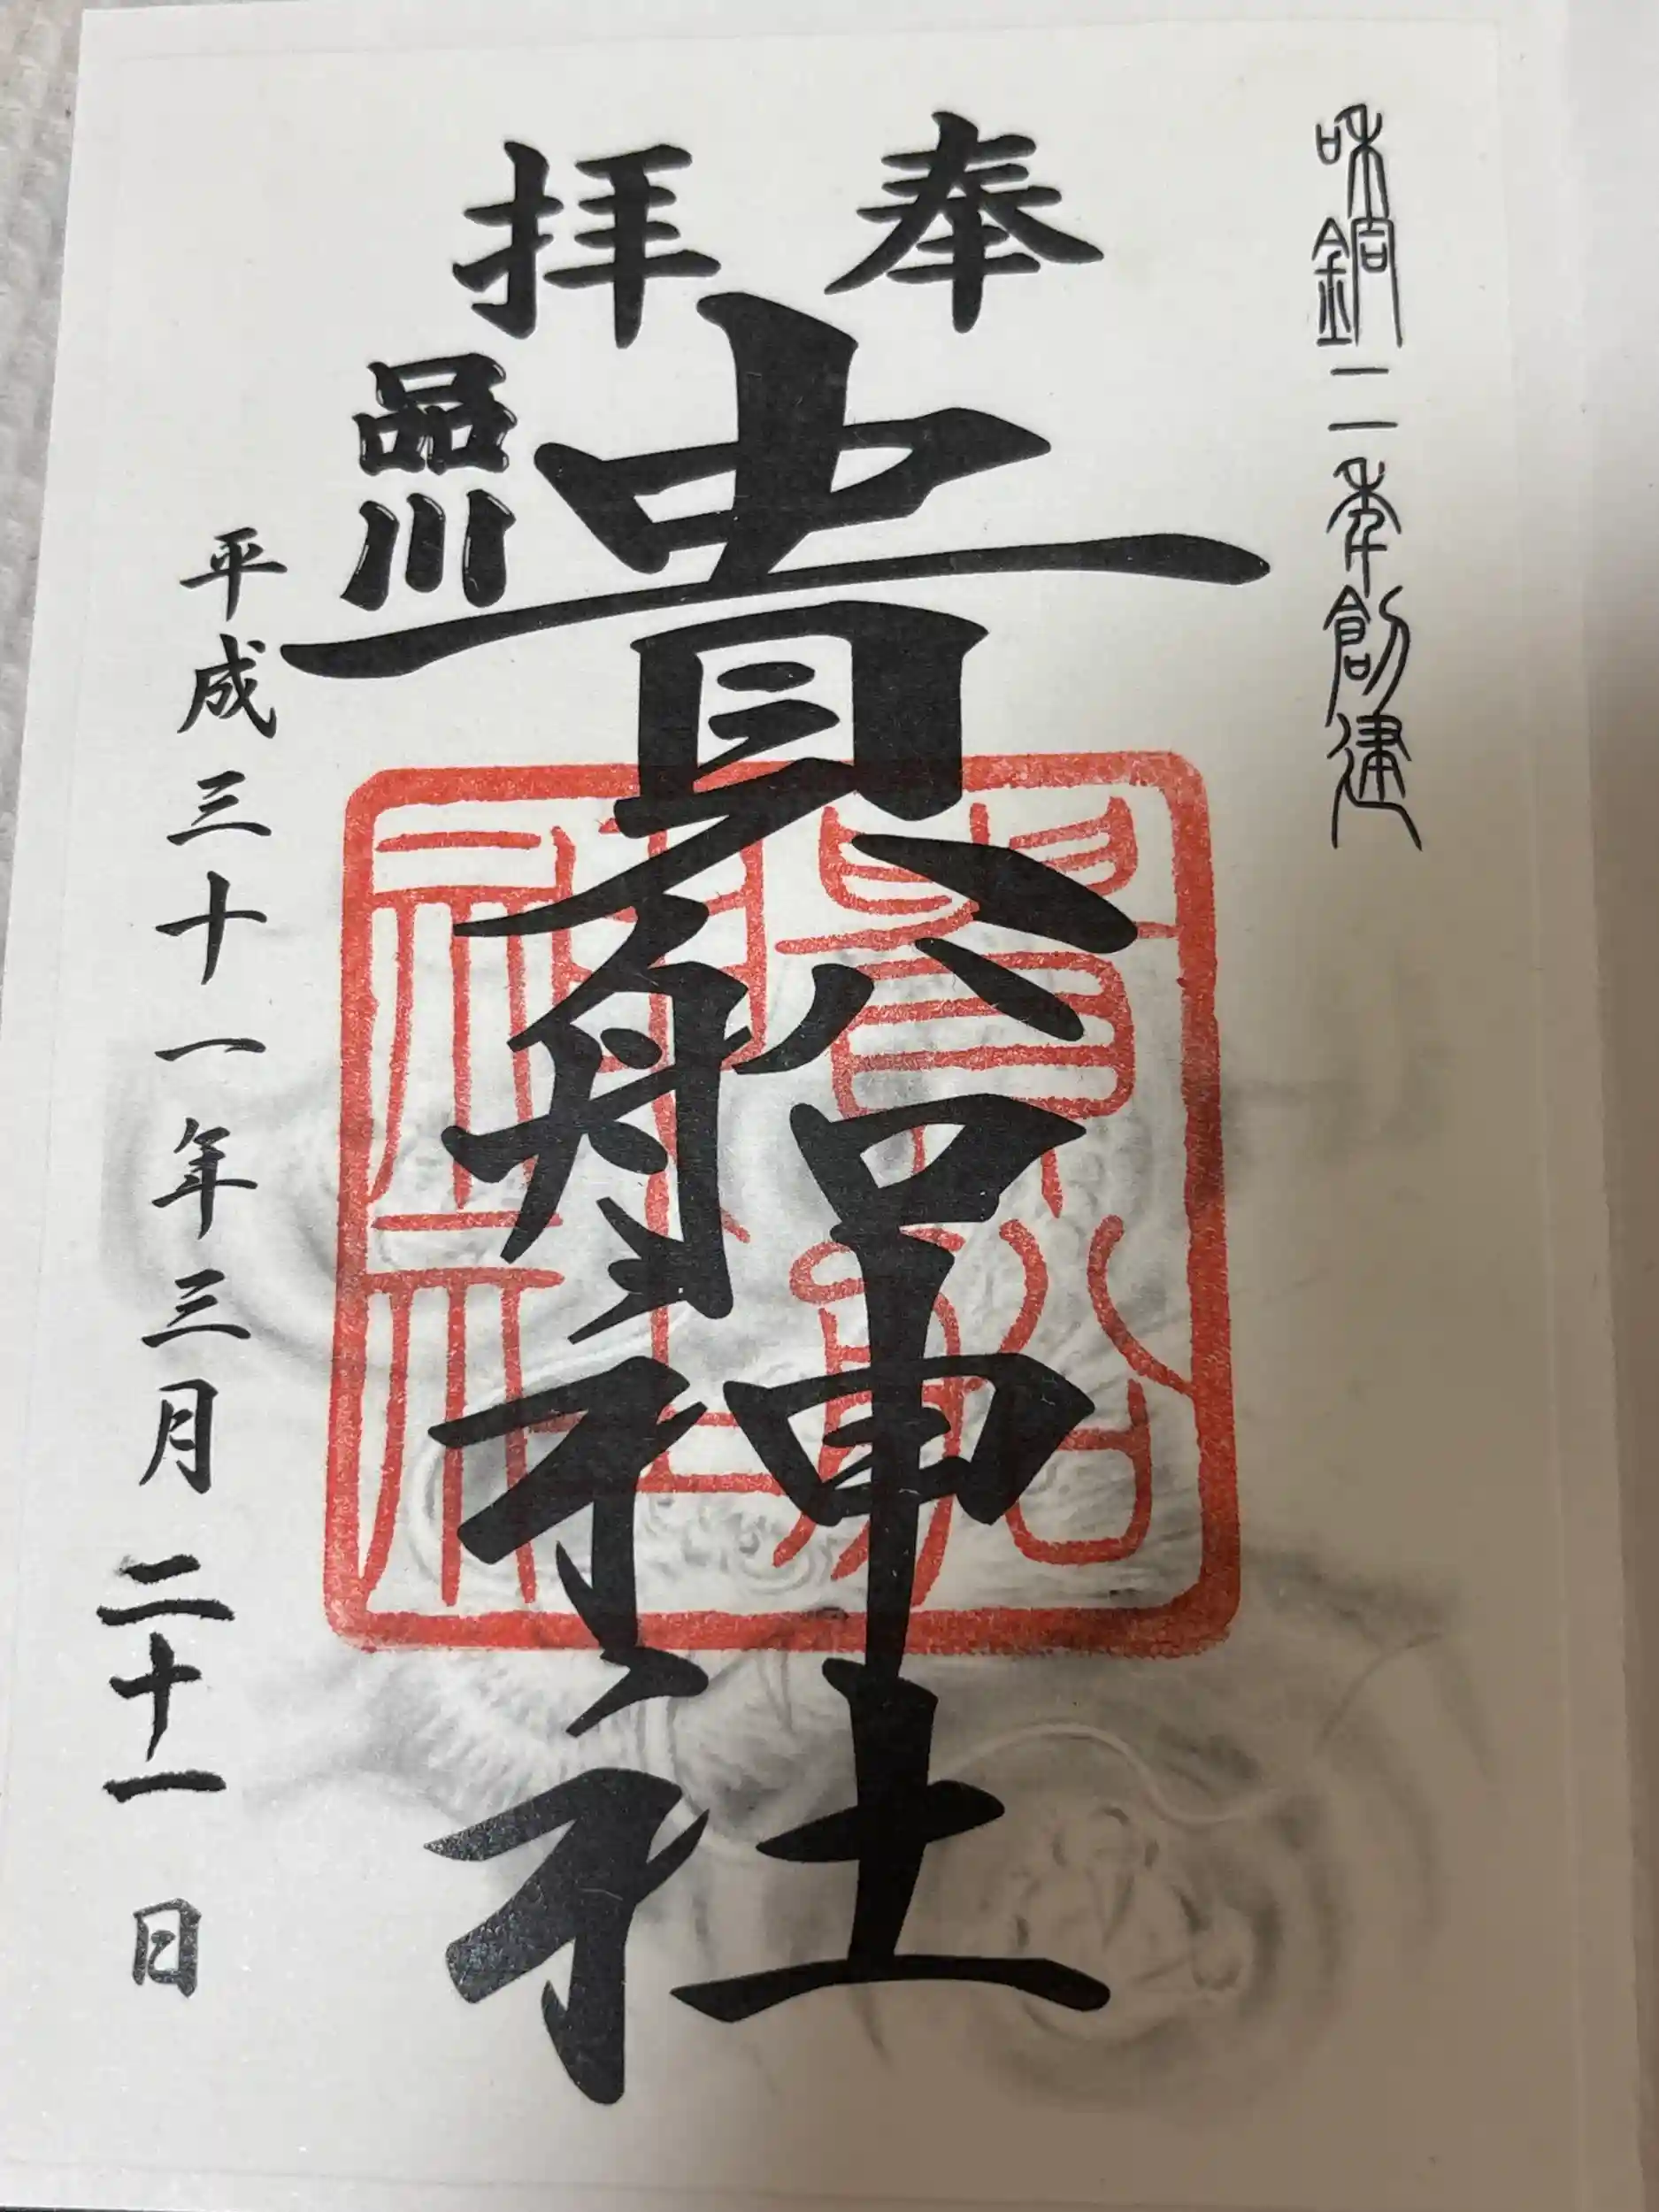 和銅二年創建
奉拝
貴船神社
品川
平成三十一年三月二十一日
貴船
神社